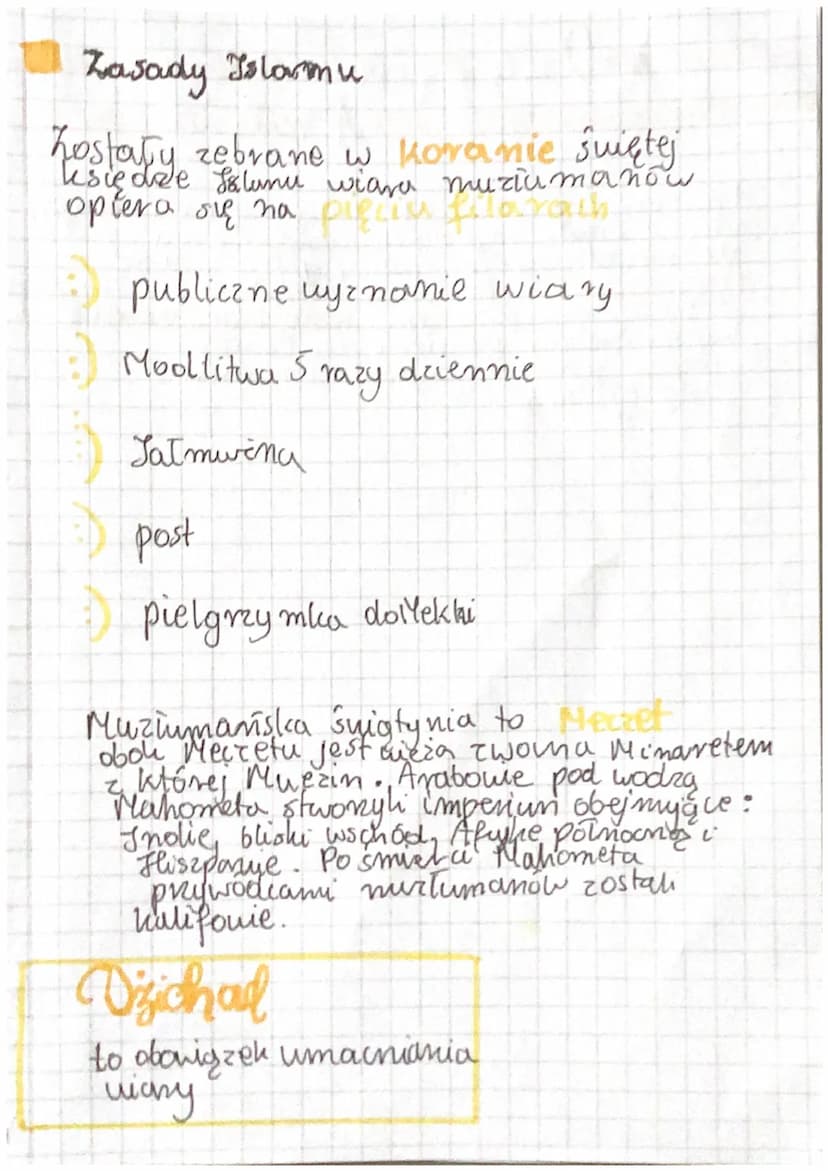 Zasady Islamu
Zostały zebrane w Koranie świętej
księdze Islamu wiara muzłumanów
opiera się na pięciu filarach
:) publiczne wyznanie wiary
:) Modlitwa 5 razy dziennie
:) Jałmużna
:) post
:) pielgrzymka do Mekki
Muzłumańska świątynia to Meczet
obok Meczetu jest wieża zwana Minaretem
z której Muezin. Arabowie pod wodzą
Mahometa stworzyli imperium obejmujące:
Indie, bliski wschód, Afrykę północną i
Hiszpanie. Po śmierci Mahometa
przywódcami muzłumanów zostali
kalifowie.
Dżichad
to obowiązek umacniania
wiary